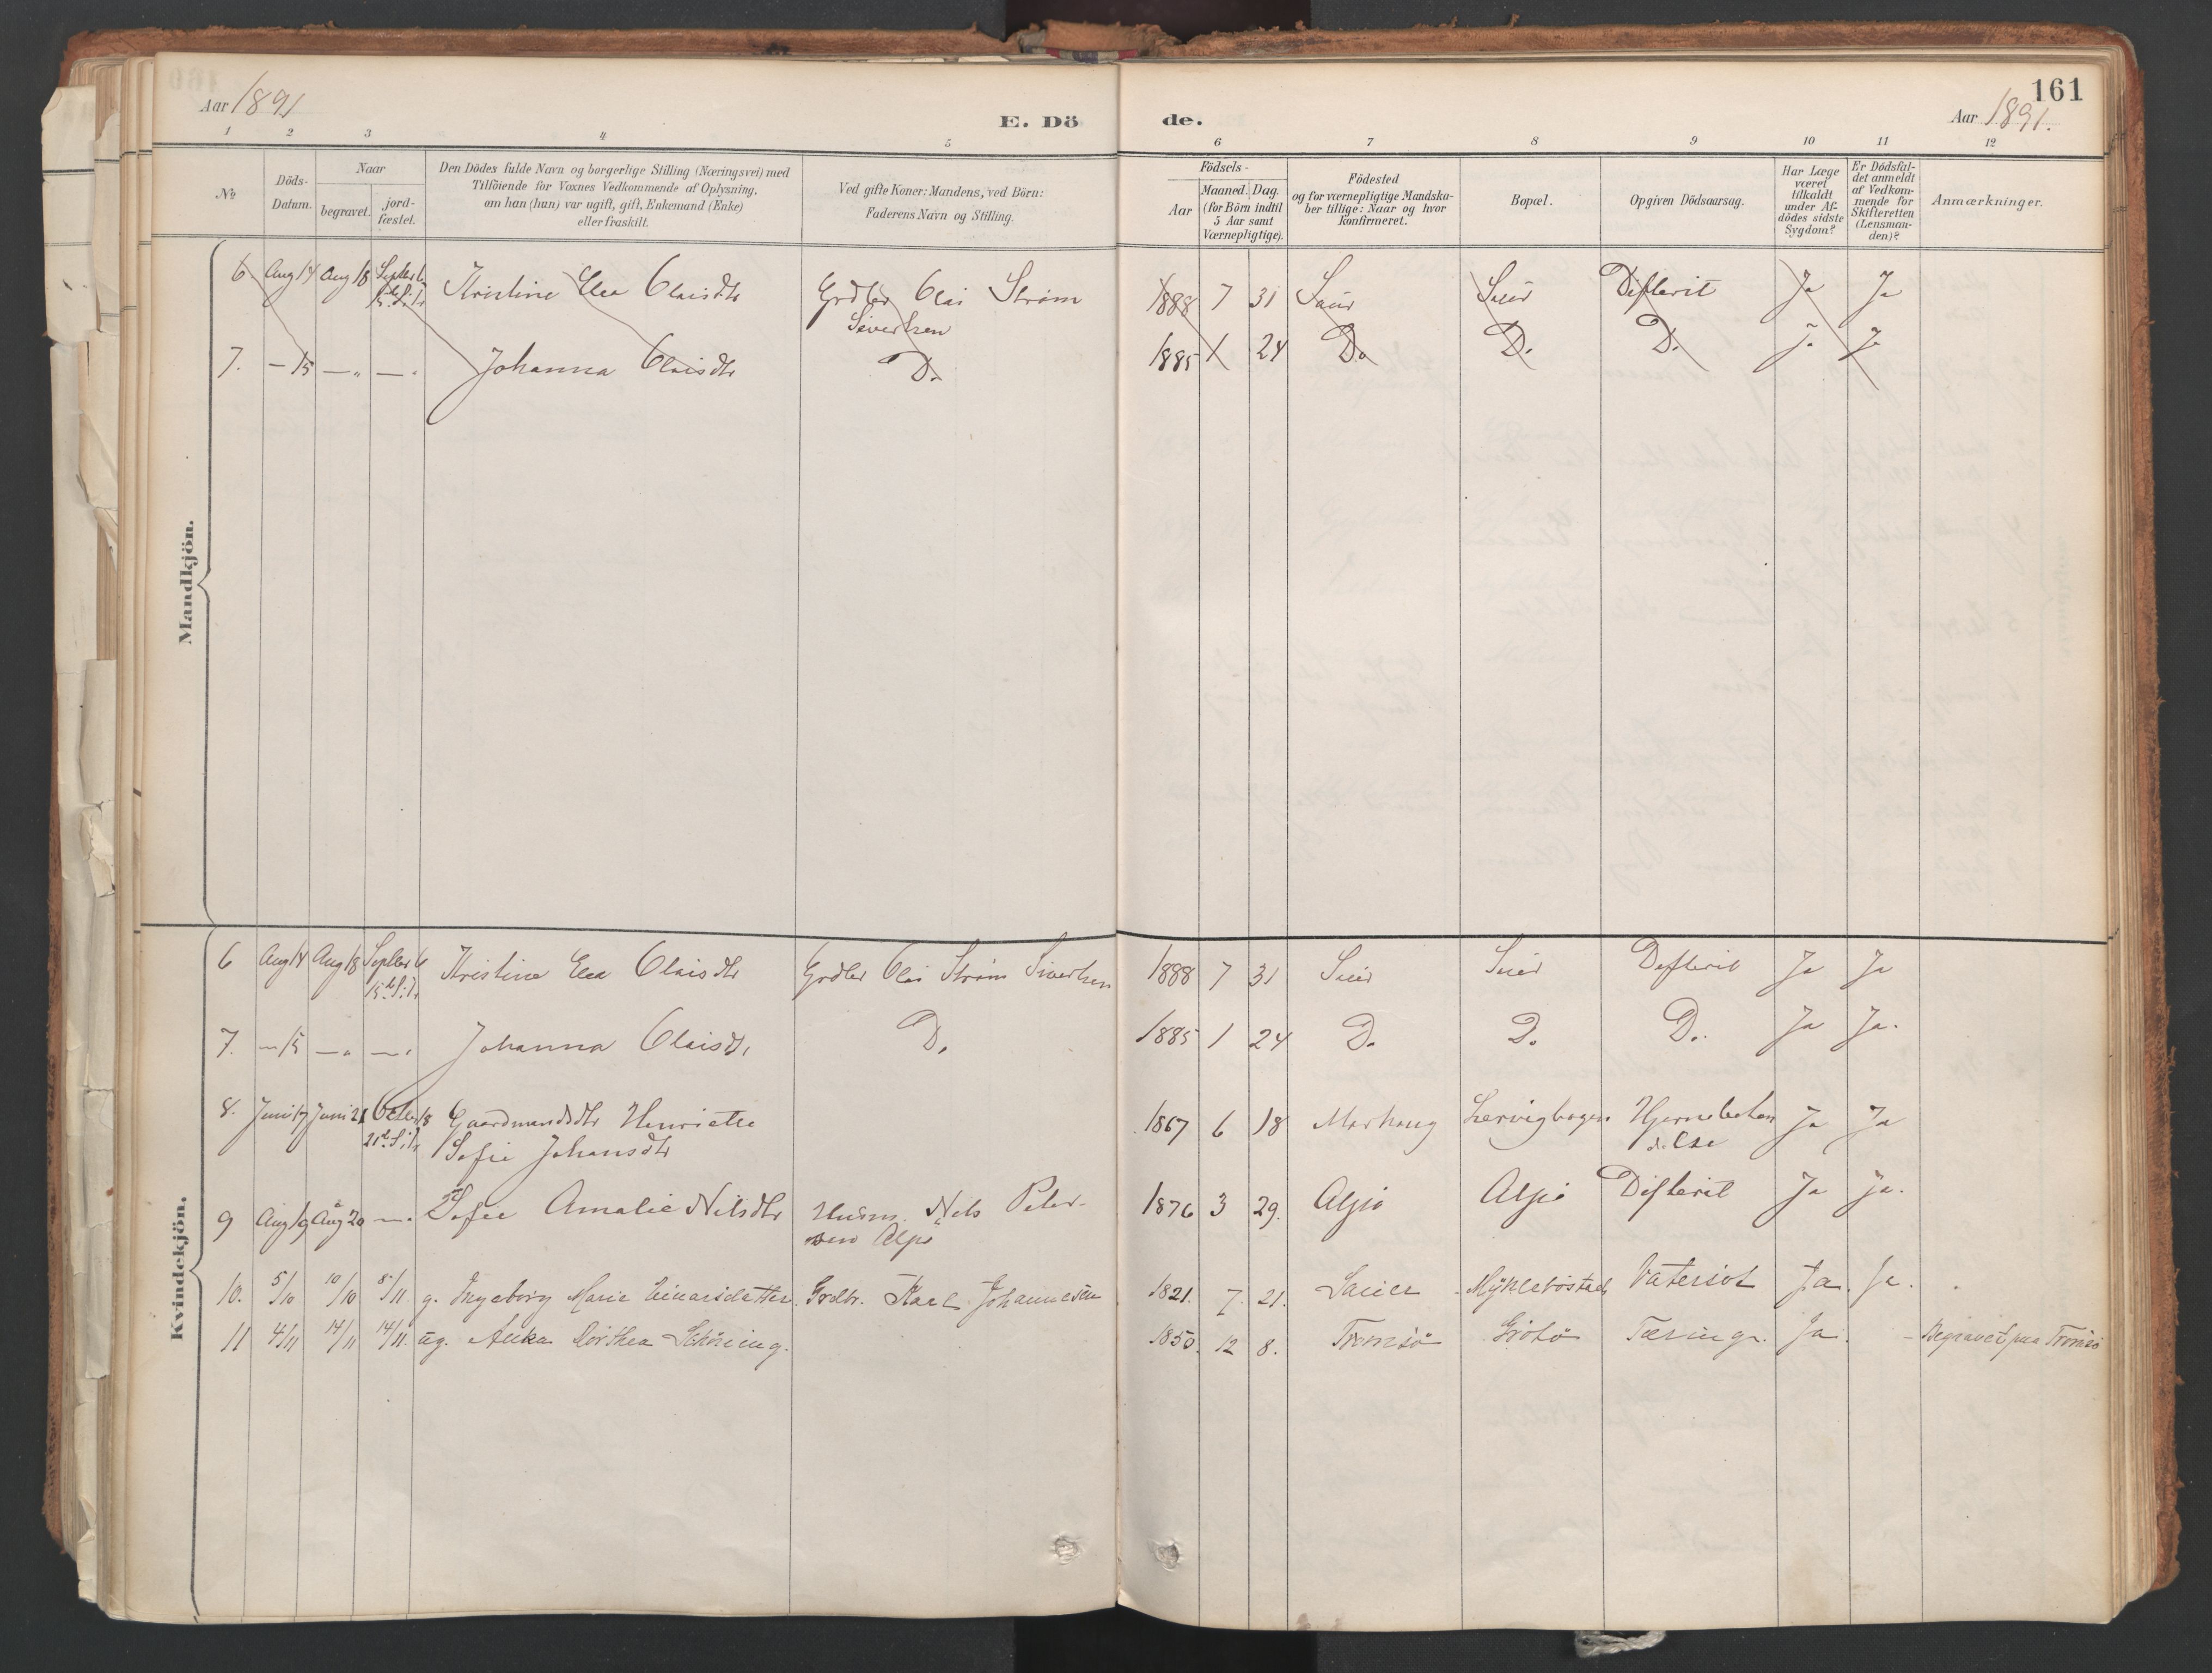 161
Aar 1891
E. Dö
de.
Aar 1891.
1 2 3 4 5 6 7 8 9 10 11 12
No
Döds-
Datum.
Naar
begravet.
jord-
fæstet.
Den Dödes fulde Navn og borgerlige Stilling (Næringsvei) med
Tilföiende for Voxnes Vedkommende af Oplysning,
om han (hun) var ugift, gift, Enkemand (Enke)
eller fraskilt.
Ved gifte Koner: Mandens, ved Börn:
Faderens Navn og Stilling.
Födsels-
Aar
Maaned. Dag.
(for Börn indtil
5 Aar samt
Værnepligtige).
Födested
og for værnepligtige Mandska-
ber tillige: Naar og hvor
konfirmeret.
Bopæl.
Opgiven Dödsaarsag.
Har Læge
været
tilkaldt
under Af-
dödes sidste
Sygdom?
Er Dödsfal-
det anmeldt
af Vedkom-
mende for
Skifteretten
(Lensman-
den)?
Anmærkninger.
Mandkjön.
6 Aug 14 Aug 18 Septbr 6 Kristine Elea Olaisdtr Grdbr Olai Strøm 1888 7 31 Difterit Ja Ja
15de S.i.Tr. Sivertsen
7. — 15 —„ —. Johanna Olaisdtr D. 1885 1 24 D. D. D. Ja Ja
Kvindekjön.
6 Aug 14 Aug 18 Septbr 6 Kristine Elea Olaisdtr Grdbr Olai Strøm Sivertsen 1888 7 31 Difterit Ja Ja
15de S.i.Tr.
7. — 15 —„ —. Johanna Olaisd. D. 1885 1 24 D. D. D. Ja Ja.
8. Juni 17 Juni 21 Octbr 18 Gaardmandsdtr Henriette 1867 6 18 Morhaug Hjernebeten Ja Ja
21de S.i.Tr. Sofie Johansdtr delse
9 Aug 19 Aug 20 —. Sofie Amalie Nilsdtr Husm. Nils Peter- 1876 3 29. Alsjø Alsjø Difterit Ja Ja.
sen
10. 5/10 10/10 8/11 g. Ingeborg Marie Einarsdatter. Grdbr. Karl Johannesen 1821. 7. 21. Myklebostad Vatersot Ja. Ja.
11 4/11 14/11 14/11. ug. Anka Dorthea Schöning. 1850. 12 8. Tromsö Grötö Tæring. Ja. – Begravet paa Tromsö